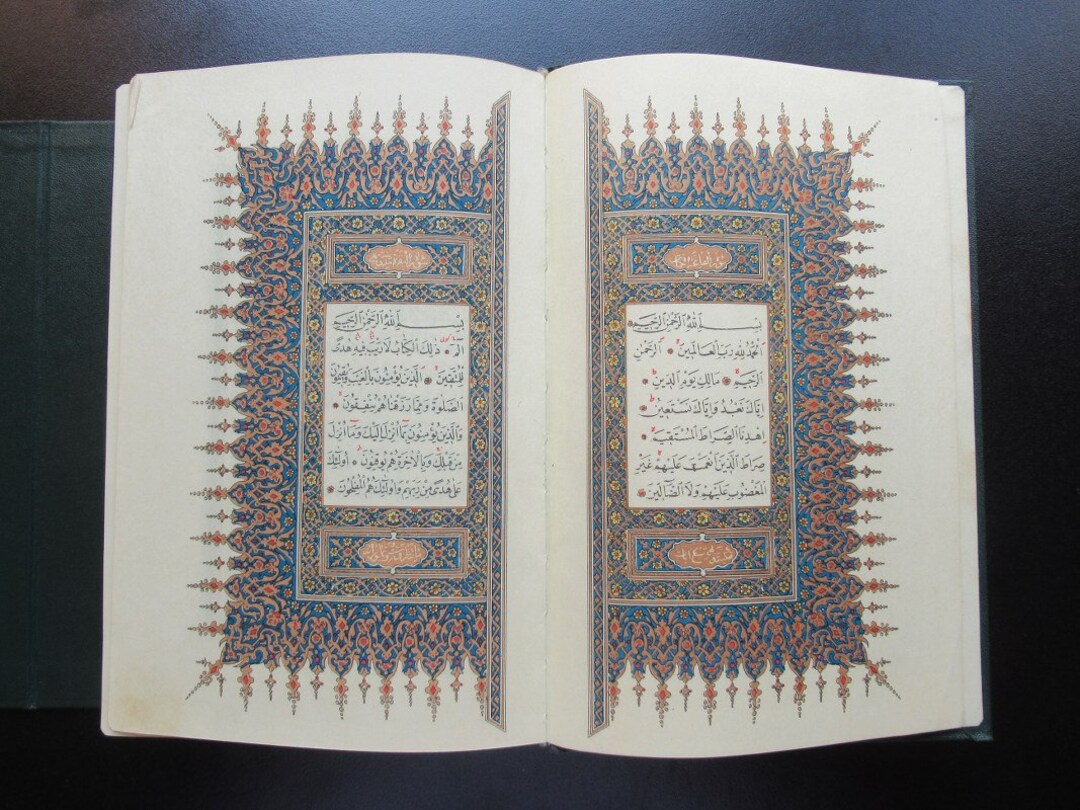 بِسْمِ اللّٰهِ الرَّحْمٰنِ الرَّحِيمِ
اَلْحَمْدُ لِلّٰهِ رَبِّ الْعَالَمِينَ الرَّحْمٰنِ
الرَّحِيمِ مَالِكِ يَوْمِ الدِّينِ
اِيَّاكَ نَعْبُدُ وَاِيَّاكَ نَسْتَعِينُ
اِهْدِنَا الصِّرَاطَ الْمُسْتَقِيمَ
صِرَاطَ الَّذِينَ اَنْعَمْتَ عَلَيْهِمْ غَيْرِ
الْمَغْضُوبِ عَلَيْهِمْ وَلَا الضَّالِّينَ
بِسْمِ اللّٰهِ الرَّحْمٰنِ الرَّحِيمِ
الٓمٓ ذٰلِكَ الْكِتَابُ لَا رَيْبَ فِيهِ هُدًى
لِلْمُتَّقِينَ اَلَّذِينَ يُؤْمِنُونَ بِالْغَيْبِ وَيُقِيمُونَ
الصَّلٰوةَ وَمِمَّا رَزَقْنَاهُمْ يُنْفِقُونَ
وَالَّذِينَ يُؤْمِنُونَ بِمَا اُنْزِلَ اِلَيْكَ وَمَا اُنْزِلَ
مِنْ قَبْلِكَ وَبِالْاٰخِرَةِ هُمْ يُوقِنُونَ اُولٰئِكَ
عَلٰى هُدًى مِنْ رَبِّهِمْ وَاُولٰئِكَ هُمُ الْمُفْلِحُونَ